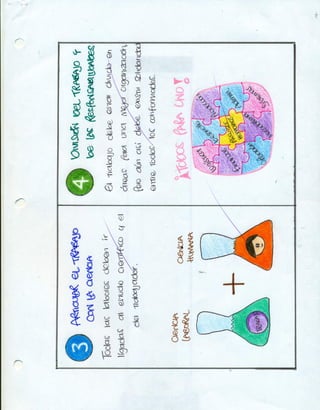 3 ARTICULAR EL TRABAJO
CON LA CIENCIA
Todas las labores deben ir
ligadas al estudio científico y el
del trabajador.
CIENCIA
LABORAL
CIENCIA
HUMANA
4 DIVISIÓN DEL TRABAJO Y
DE LAS RESPONSABILIDADES
El trabajo debe estar dividido en
áreas para una mejor organización,
pero aún así debe existir solidaridad
entre todos los conformados.
¡TODOS PARA UNO!